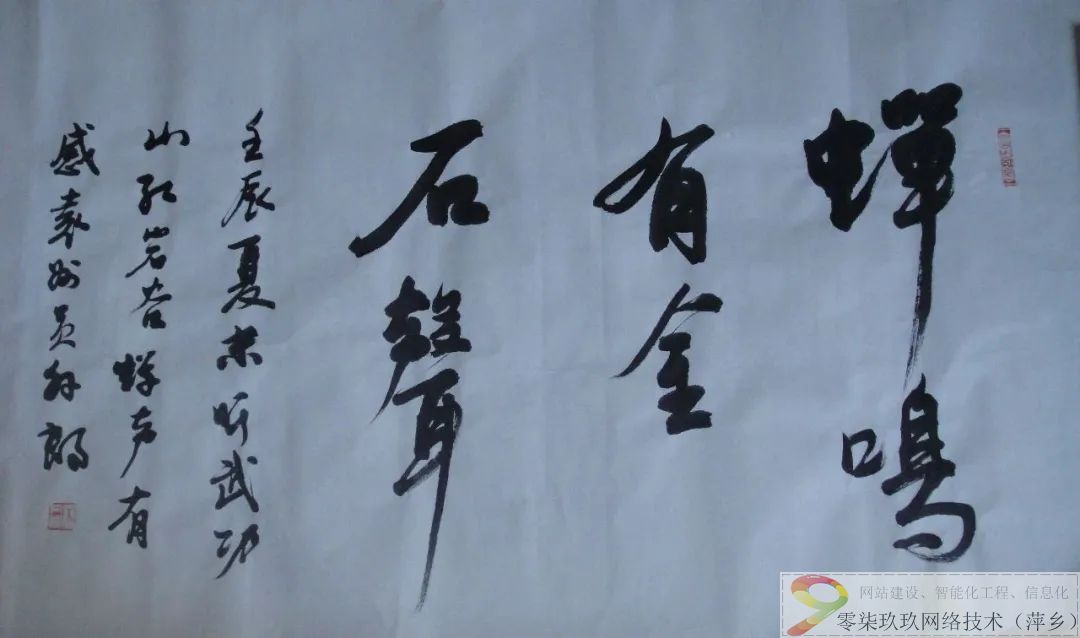 蟬鳴
有金
石聲
壬辰夏末听武功
山红岩谷蝉声有
感袁州员外郎
网站建设、智能化工程、信息化
零柒玖玖网络技术（萍乡）